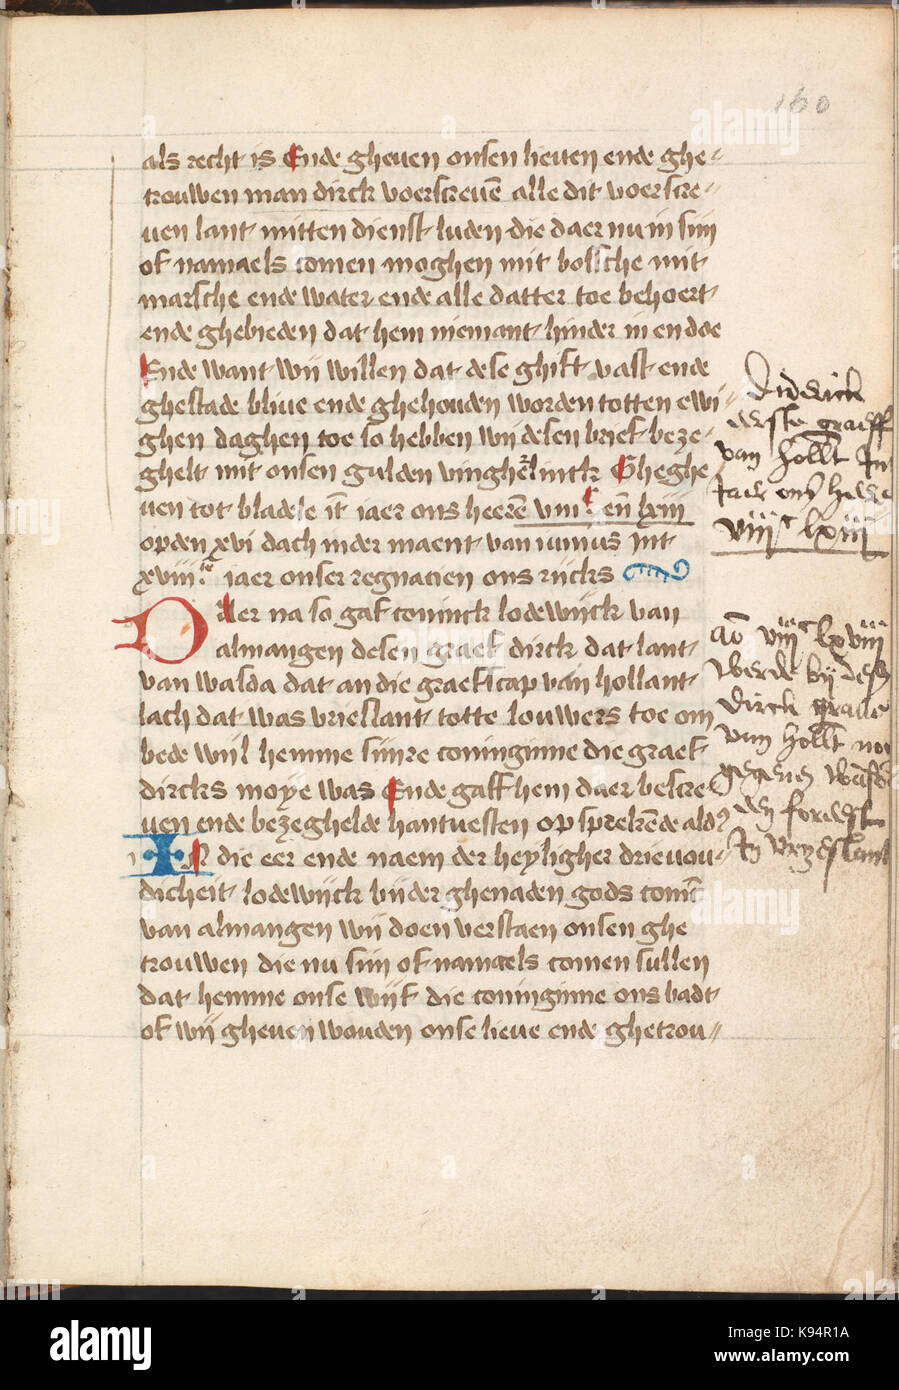 160
als recht is Ende gheuen onsen lieuen ende ghe⸗
trouwen man dirck voerscreuē alle dit voerscre⸗
uen lant mitten dienst luden die daer nu in siin
of namaels comen moghen mit bossche mit
marsche ende water ende alle datter toe behoert
ende ghebieden dat hem niemant hinder in en doe
Ende want wij willen dat dese ghift vast ende
ghestade bliue ende ghehouden worden totten ewi⸗
ghen daghen toe so hebben wij desen brief beze⸗
ghelt mit onsen gulden vingherlinck Gheghe
uen tot bladele īt iaer ons heerē viiiᶜ eñ lxiii
opden xvi dach inder maent van iunius Int
xviii iaer onser regnacien ons rijcks
Daer na so gaf coninck lodewijck van
almangen desen graef dirck dat lant
van wasda dat an die graefscap van hollant
lach dat was vrieslant totte louwers toe om
bede wijl hemme siinre coninginne die graef
dircks moye was Ende gaff hem daer bescre
uen ende bezeghelde hantuesten op sprekēde aldꝰ
IN die eer ende naem der heyligher drieuou⸗
dicheit lodewijck bijder ghenaden gods conīc
van almangen wij doen verstaen onsen ghe
trouwen die nu siin of namaels comen sullen
dat hemme onse wijf die coninginne ons badt
of wij gheuen wouden onse lieue ende ghetrou⸗
Diderick
eerste graeff
van Hollt In
Iaer ons here
viiiᶜ lxiii
Aō viiiᶜ lxviii
werde bij desen
Dirck graue
van Hollt
In vryeslant
alamy
K94R1A
www.alamy.com